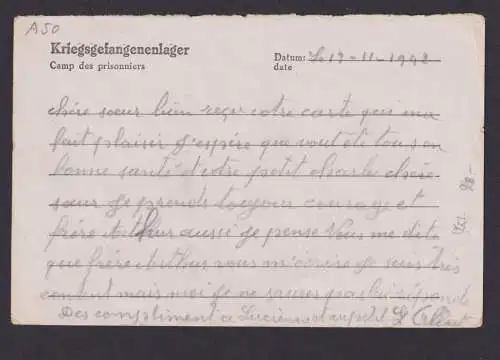 A50
Kriegsgefangenenlager
Camp des prisonniers
Datum: Le 17-11-1942
date
chère sœur bien reçu votre carte qui ma
fait plaisir j'espère que vout ète tous en
bonne santé votre petit charle chère
sœur je prends toujour courage et
frère Arthur aussi je pense Vous me dite
que frère Arthur vous m'écrire je suis très
contant mais moi je ne saures pas lui réponde
Des compliment a Lucienne et au petit